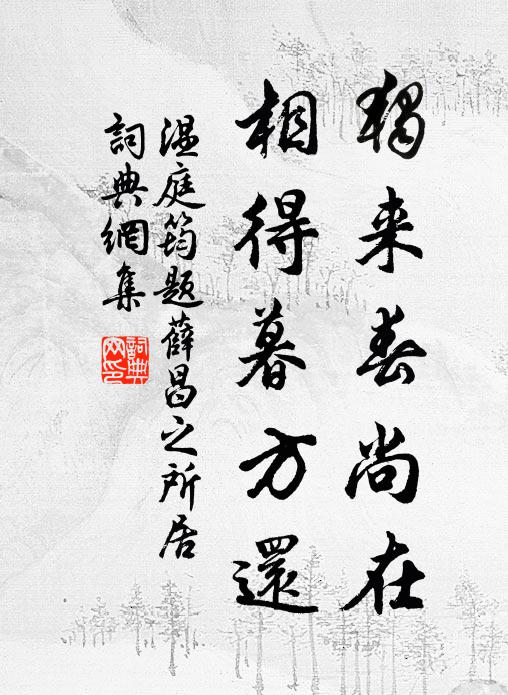 獨来春尚在
相得暮方還
温庭筠题薛昌之所居
詞典網集
詞典
网印